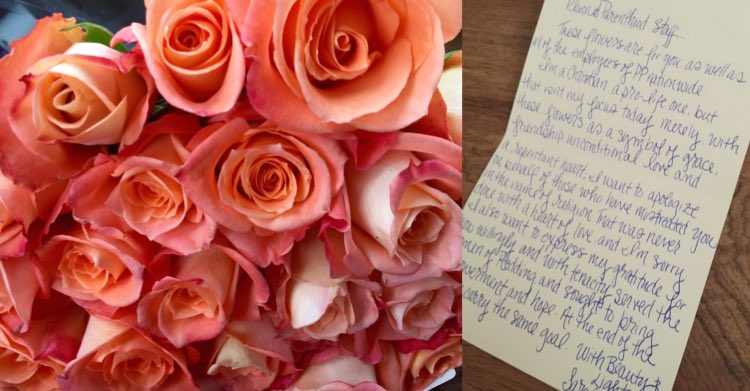 Planned Parenthood Staff...
These flowers are for you as well as
all of the employees of PP nationwide.
I'm a Christian, a pro-life one, but
that isn't my focus today merely with
these flowers as a symbol of grace,
friendship, unconditional love and
a repentant heart. I want to apologize
on behalf of those who have mistreated you
in the name of religion. That was never
done with a heart of love and I'm sorry.
I also want to express my gratitude for
how willingly and with tenacity served the
women of Redding and sought to bring
empowerment and hope. At the end of the
carry the same goal.
With